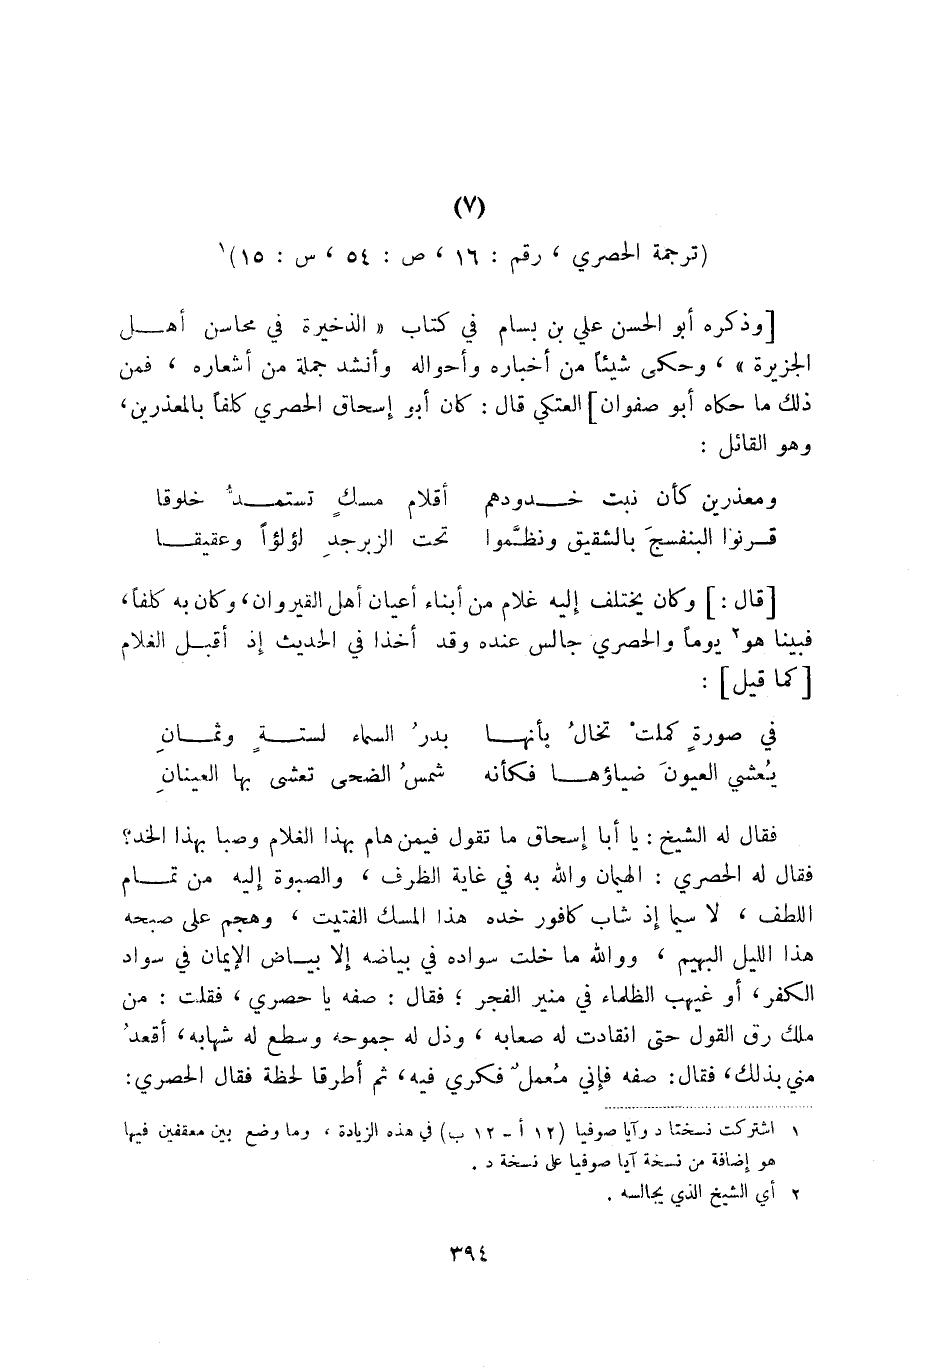 (٧)
(ترجمة الحصري ، رقم : ١٦ ، ص : ٥٤ ، س : ١٥)١
[وذكره أبو الحسن علي بن بسام في كتاب « الذخيرة في محاسن أهـــل
الجزيرة » ، وحكى شيئاً من أخباره وأحواله وأنشد جملة من أشعاره ، فمن
ذلك ما حكاه أبو صفوان] العتكي قال : كان أبو إسحاق الحصري كلفاً بالمعذرين،
وهو القائل :
ومعذرين كأن نبت خـــدودهم أقلام مسكٍ تستمـــدُ خلوقا
قـرنوا البنفسجَ بالشقيق ونظَّموا تحت الزبرجدِ لؤلؤاً وعقيقـــا
[قال :] وكان يختلف إليه غلام من أبناء أعيان أهل القيروان، وكان به كلفاً،
فبينا هو٢ يوماً والحصري جالس عنده وقد أخذا في الحديث إذ أقبـل الغلام
[كما قيل] :
في صورةٍ كملتْ تخالُ بأنهـــا بدرُ السماء لستـــةٍ وثمـــانِ
يُعشي العيونَ ضياؤهـــا فكأنه شمسُ الضحى تعشى بها العينانِ
فقال له الشيخ : يا أبا إسحاق ما تقول فيمن هام بهذا الغلام وصبا بهذا الخد؟
فقال له الحصري : الهيمان والله به في غاية الظرف ، والصبوة إليه من تمـــام
اللطف ، لا سيما إذ شاب كافور خده هذا المسك الفتيت ، وهجم على صبحه
هذا الليل البهيم ، ووالله ما خلت سواده في بياضه إلا بيـــاض الإيمان في سواد
الكفر، أو غيهب الظلماء في منير الفجر ؛ فقال : صفه يا حصري ، فقلت : من
ملك رق القول حتى انقادت له صعابه ، وذل له جموحه وسطع له شهابه، أقعدُ
مني بذلك، فقال: صفه فإني مُعملٌ فكري فيه، ثم أطرقا لحظة فقال الحصري:
١ اشتركت نسختا د وآيا صوفيا (١٢ أ - ١٢ ب) في هذه الزيادة ، وما وضع بين معقفين فيها
هو إضافة من نسخة آيا صوفيا على نسخة د .
٢ أي الشيخ الذي يجالسه .
٣٩٤